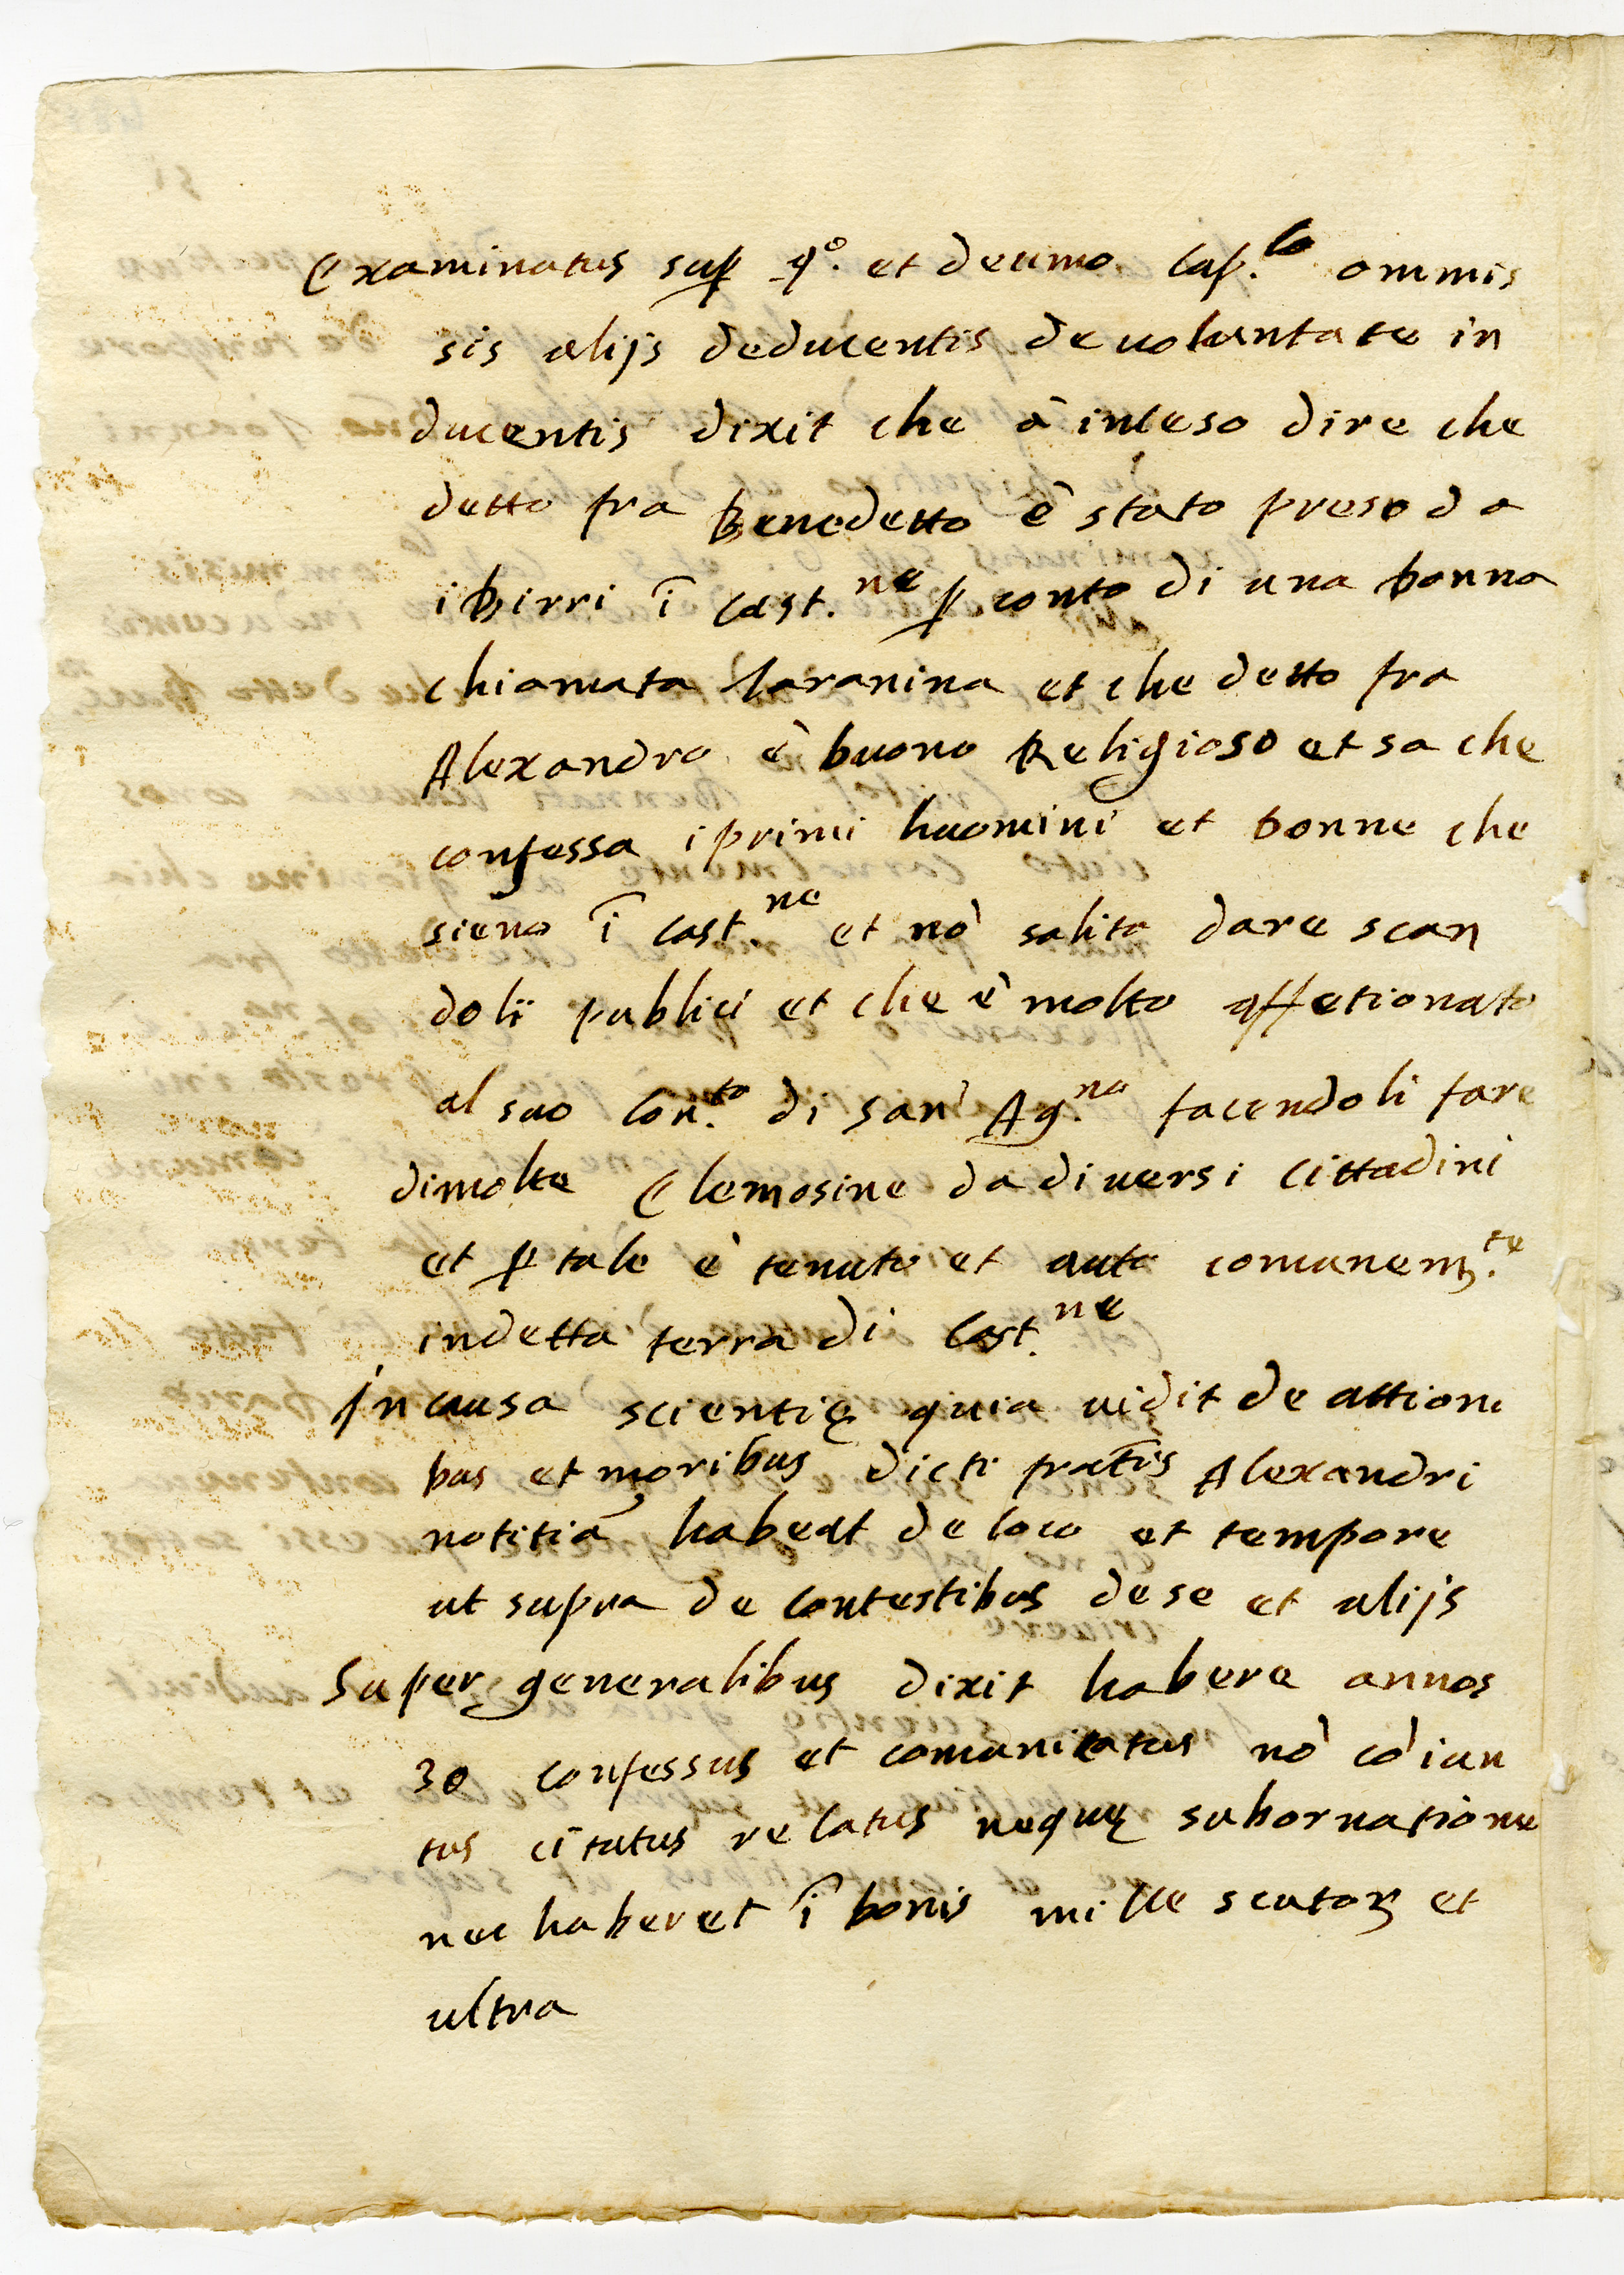 Examinatus sup 9º. et decimo Cap.lo ommis
sis alijs deducentis de uoluntate in
ducentis dixit che à inteso dire che
detto fra Benedetto è stato preso da
i birri ī Cast.ne p conto di una donna
chiamata laranina et che detto fra
Alexandro è buono Religioso et sa che
confessa i primi huomini et donne che
sieno ī Cast.ne et nō solito dare scan
doli publici et che è molto affetionato
al suo Con.to di san Ag.no facendoli fare
dimolte Elemosine da diuersi Cittadini
et p tale è tenuto et auto comunem.te
in detta terra di Cast.ne
In causa scientię quia uidit de attioni
bus et moribus dicti fratīs Alexandri
notitiā habeat de loco et tempore
ut supra de Contestibus de se et alijs
Super generalibus dixit habere annos
30 confessus et comunicatus nō cōiun
tus citatus relatus neque subornatione
nec haberet ī bonis mille scutoꝝ et
ultra